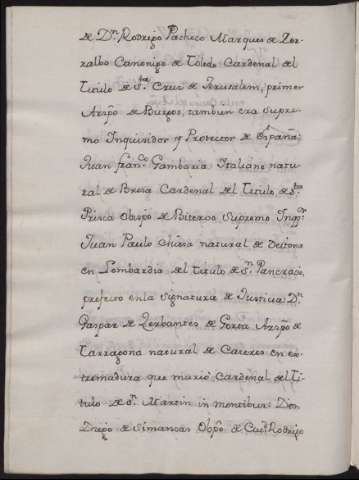 de Dn. Rodrigo Pacheco Marques de Zer-
ralbo Canonigo de Toledo Cardenal del
Titulo de Sta. Cruz de Jerusalem, primer
Arzpo. de Burgos, tambien era Supre-
mo Inquisidor y Protector de España:
Juan Franco. Gambaria Italiano natu-
ral de Bresa Cardenal del Titulo de Sta.
Prisca Obispo de Viterbo Supremo Inqr.
Juan Paulo Chiesa natural de Deitona
en Lombardia del titulo de Sn. Pancracio
prefecto enla Signatura de Justicia: Dn.
Gaspar de Zerbantes de Gaeta Arzpo. de
Tarragona natural de Caceres en Ex-
tremadura que murio Cardenal del Ti-
tulo de Sn. Martin in montibus: Don
Diego de Simancas Obpo. de Cuid. Rodrigo